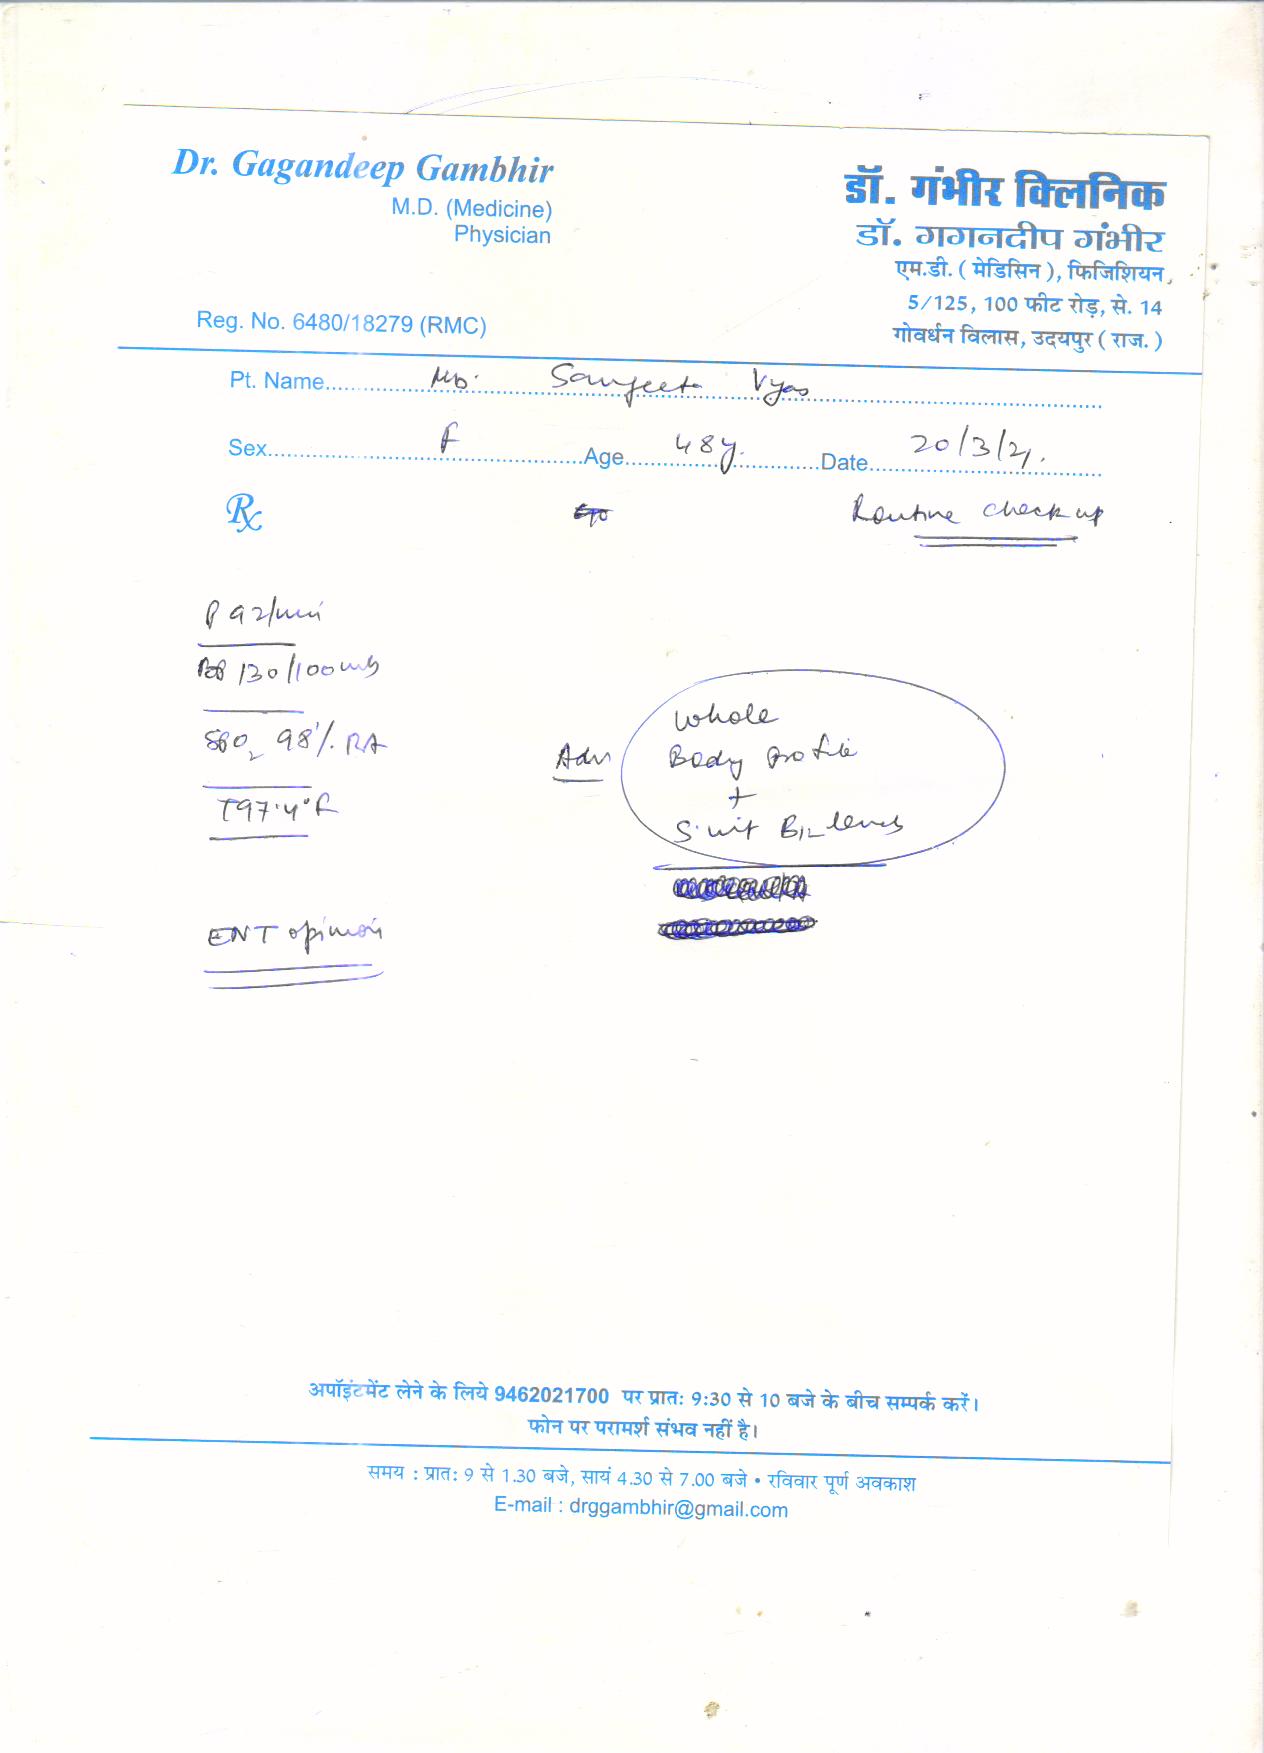 Dr. Gagandeep Gambhir
M.D. (Medicine)
Physician
Reg. No. 6480/18279 (RMC)
डॉ. गंभीर क्लिनिक
डॉ. गगनदीप गंभीर
एम.डी. ( मेडिसिन ), फिजिशियन,
5/125, 100 फीट रोड़, से. 14
गोवर्धन विलास, उदयपुर ( राज. )
Pt. Name Sangeeta Vyas
Sex F Age 48y. Date 20/3/21.
Rx
Routine check up
P 92/min
BP 130/100
SPO2 98% RA
T97.4°F
Adv
Whole
Body profile
+
S. vit B12 levels
ENT opinion
अपॉइंटमेंट लेने के लिये 9462021700 पर प्रातः 9:30 से 10 बजे के बीच सम्पर्क करें।
फोन पर परामर्श संभव नहीं है।
समय : प्रातः 9 से 1.30 बजे, सायं 4.30 से 7.00 बजे • रविवार पूर्ण अवकाश
E-mail : drggambhir@gmail.com